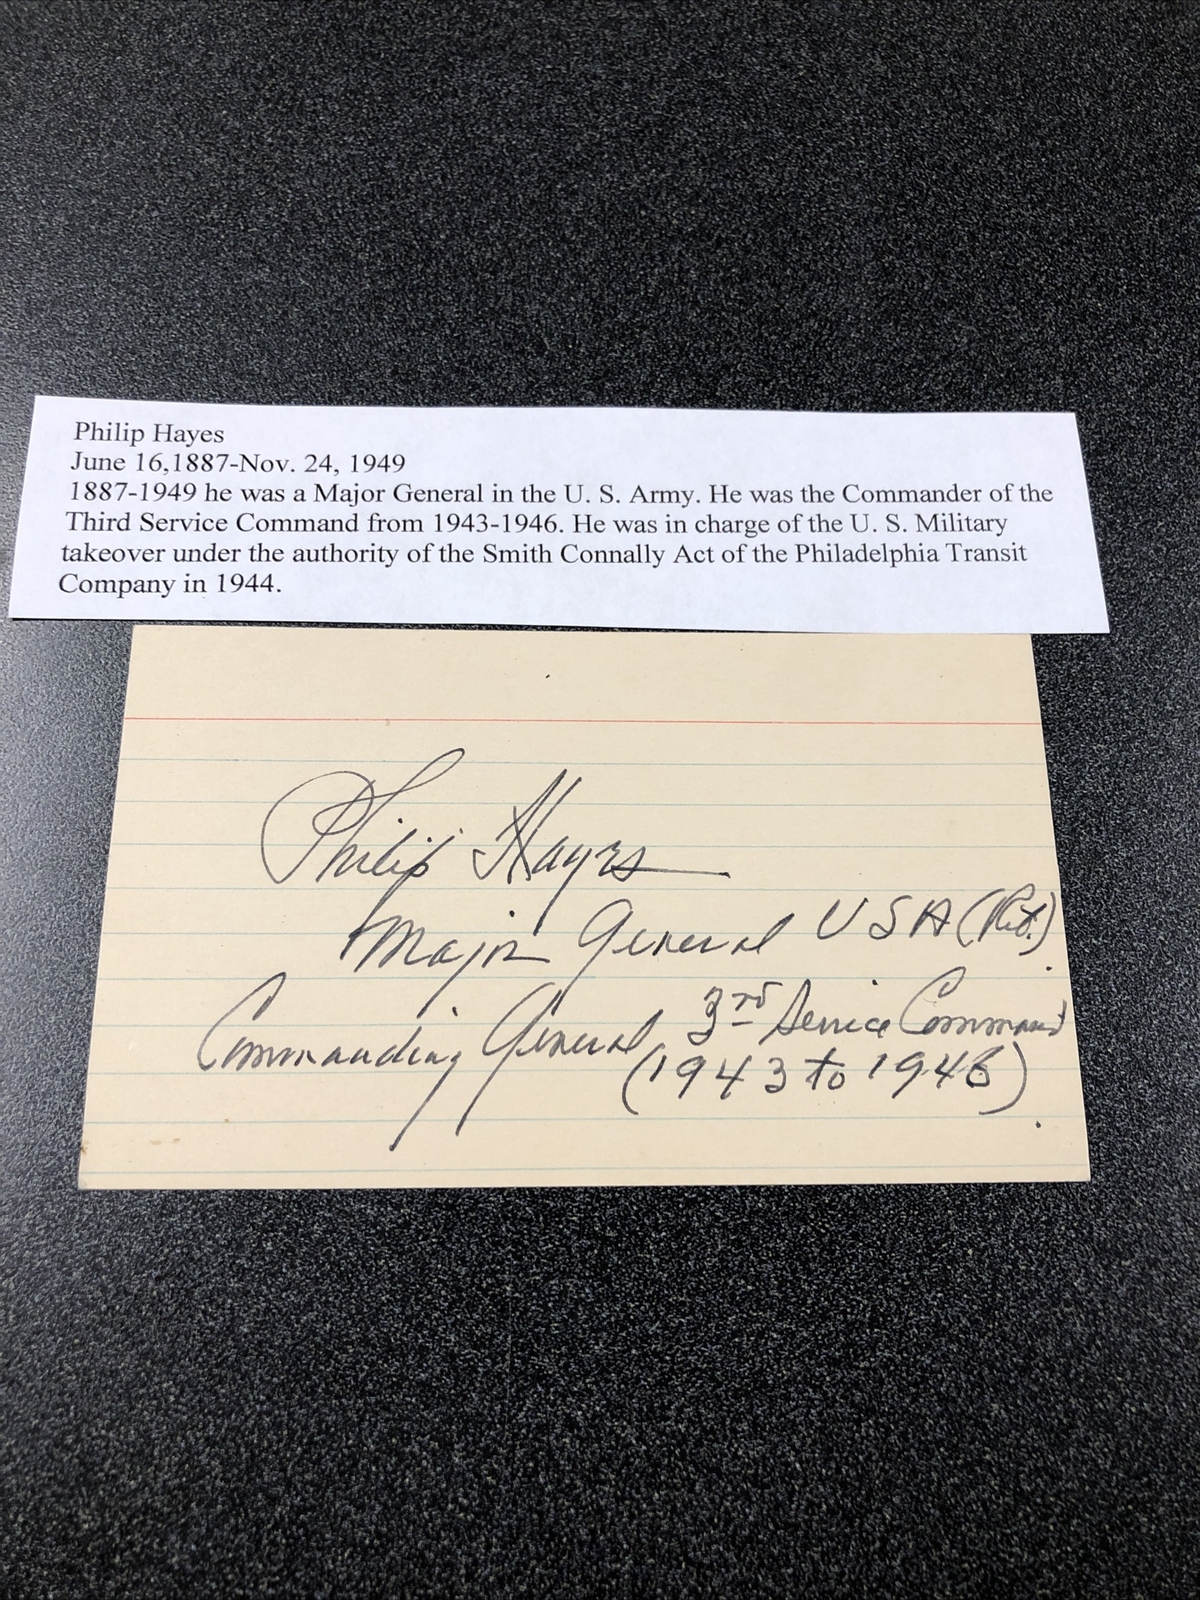 Philip Hayes
June 16,1887-Nov. 24, 1949
1887-1949 he was a Major General in the U. S. Army. He was the Commander of the
Third Service Command from 1943-1946. He was in charge of the U. S. Military
takeover under the authority of the Smith Connally Act of the Philadelphia Transit
Company in 1944.
Philip Hayes
Major General USA (Ret.)
Commanding General 3rd Service Command
(1943 to 1946)